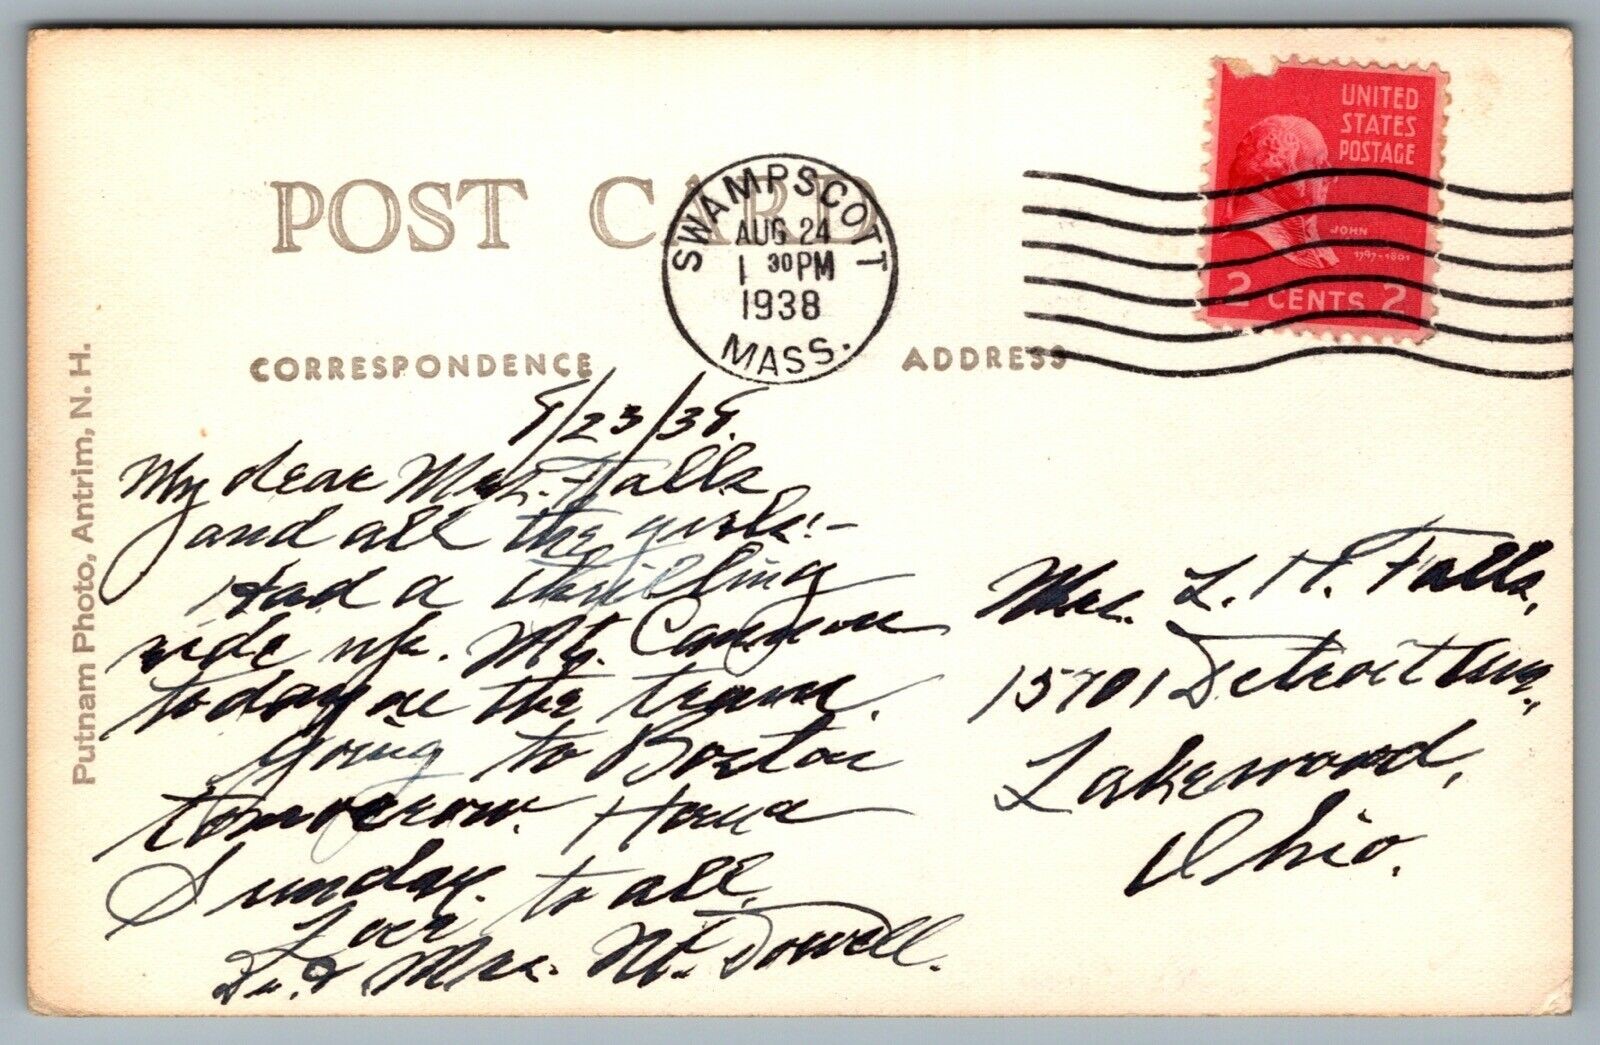 UNITED
STATES
POSTAGE
JOHN
1797-1801
2 CENTS 2
POST CARD
SWAMPSCOTT
AUG 24
1 30 PM
1938
MASS.
CORRESPONDENCE
ADDRESS
Putnam Photo, Antrim, N. H.
8/23/38.
My dear Mrs. Falls
and all the girls:-
Had a thrilling
ride up. Mt. Cannon
today on the tram.
Going to Boston
tomorrow. Home
Sunday.
Love to all.
Dr. & Mrs. McDowell.
Mrs. L. H. Falls,
15701 Detroit Ave.,
Lakewood,
Ohio.